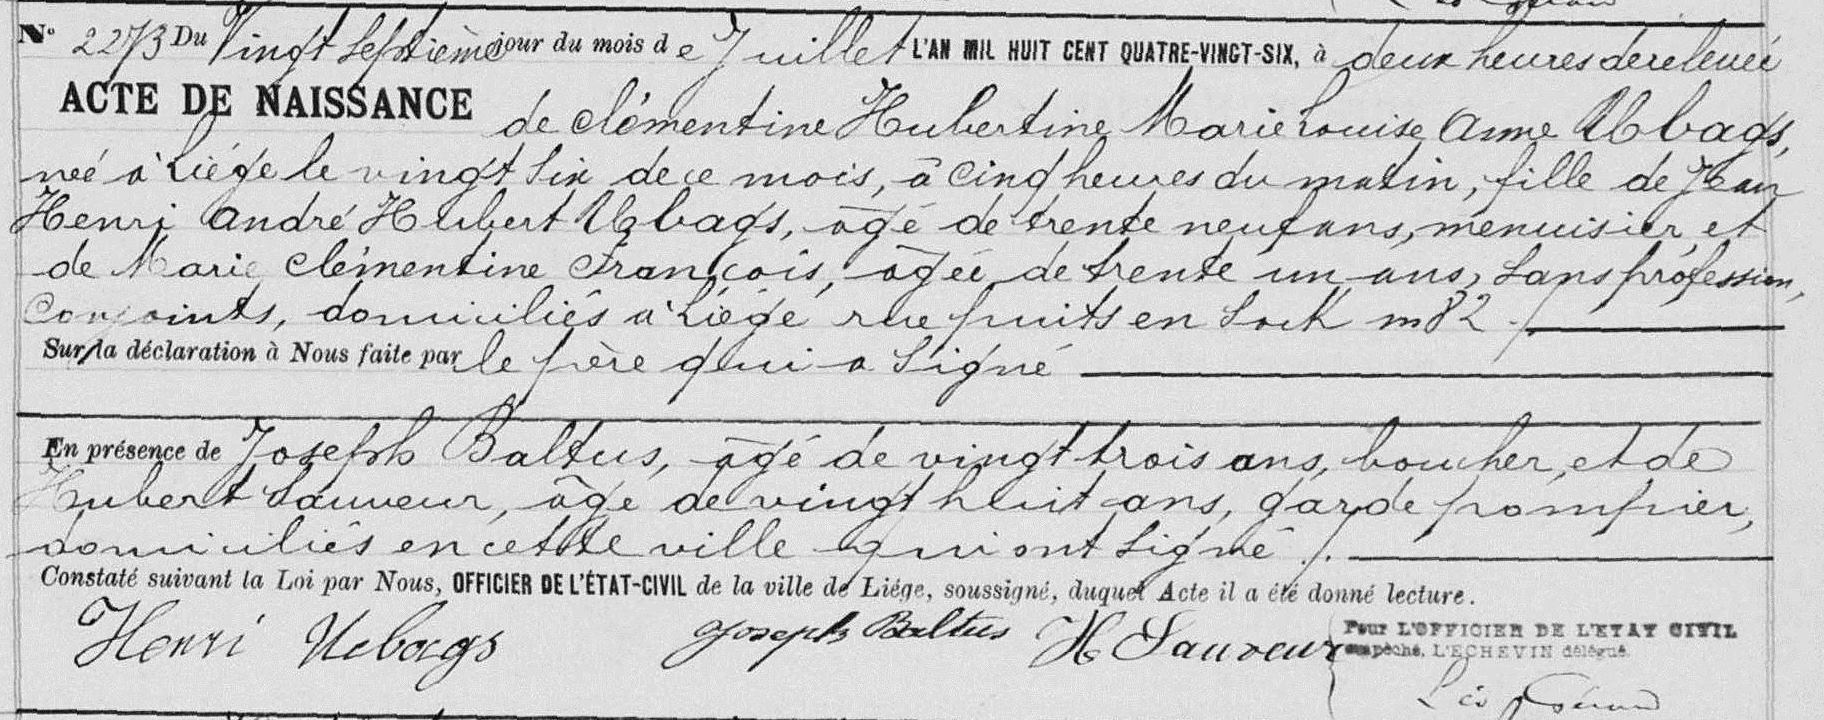 N° 2273 Du Vingt septième jour du mois de Juillet L'AN MIL HUIT CENT QUATRE-VINGT-SIX, à deux heures de relevée
ACTE DE NAISSANCE de Clémentine Hubertine Marie Louise Anne Ubbags,
née à Liége le vingt six de ce mois, à cinq heures du matin, fille de Jean
Henri André Hubert Ubbags, âgé de trente neuf ans, menuisier, et
de Marie Clémentine François, âgée de trente un ans, sans profession,
Conjoints, domiciliés à Liége rue puits en Sock n° 82 ./.
Sur la déclaration à Nous faite par le père qui a signé
En présence de Joseph Baltus, âgé de vingt trois ans, boucher, et de
Hubert Sauveur, âgé de vingt huit ans, garde pompier,
domiciliés en cette ville qui ont signé ./.
Constaté suivant la Loi par Nous, OFFICIER DE L'ÉTAT-CIVIL de la ville de Liége, soussigné, duquel Acte il a été donné lecture.
Henri Uebags Joseph Baltus H Sauveur
Pour L'OFFICIER DE L'ETAT CIVIL
empêché, L'ECHEVIN délégué.
Léo Gérard